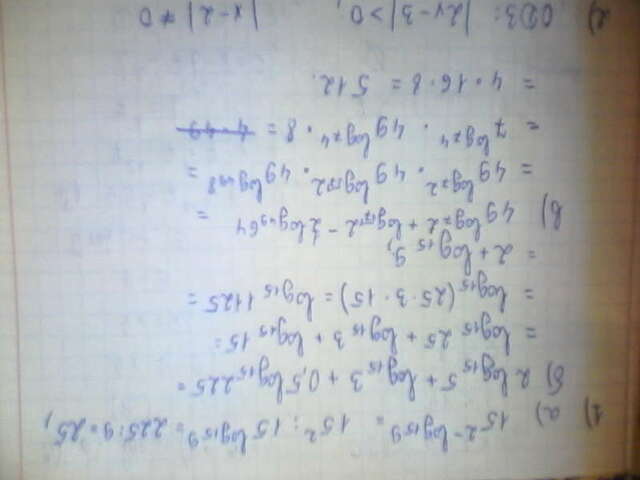 1) а) 15^{2-log_{15}9} = 15² : 15^{log_{15}9} = 225 : 9 = 25;
б) 2 log_{15} 5 + log_{15} 3 + 0,5 log_{15} 225 =
= log_{15} 25 + log_{15} 3 + log_{15} 15 =
= log_{15} (25 · 3 · 15) = log_{15} 1125 =
= 2 + log_{15} 5;
в) 49^{log_7 2 + log_7 2 - \frac{1}{2} log_{49} 64} =
= 49^{log_7 2} · 49^{log_7 2} · 49^{log_{49} 8} =
= 7^{log_7 4} · 49^{log_7 4} · 8 = 4 · 49
= 4 · 16 · 8 = 512.
2) ОДЗ: |2x-3| > 0, |x-2| ≠ 0